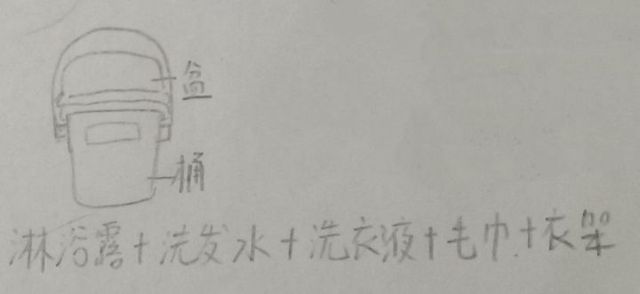 盆
桶
淋浴露+洗发水+洗衣液+毛巾+衣架